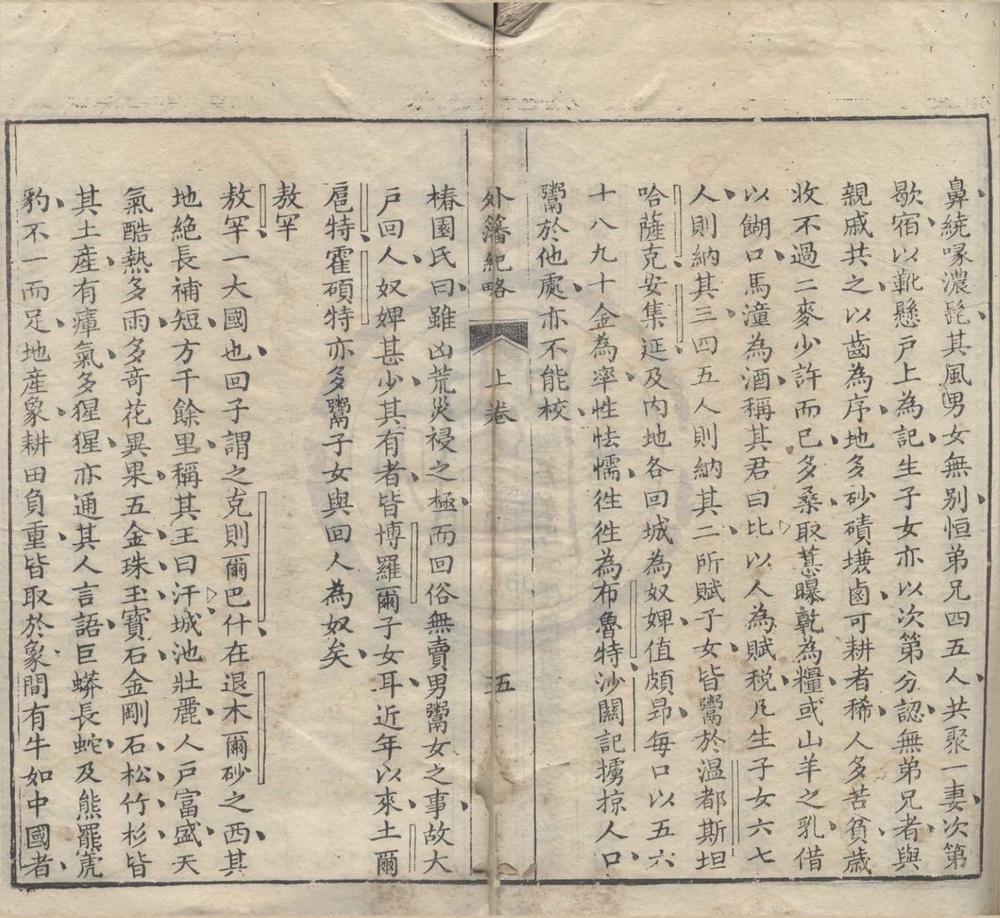 鼻繞喙濃髭其風男女無別恒弟兄四五人共聚一妻次第
歇宿以靴懸戸上為記生子女亦以次第分認無弟兄者與
親戚共之以齒為序地多砂磧塉鹵可耕者稀人多苦貧歲
收不過二麥少許而已多桑取葚曝乾為糧或山羊之乳借
以餬口馬潼為酒稱其君曰比以人為賦税凡生子女六七
人則納其三四五人則納其二所賦子女皆鬻於温都斯坦
哈薩克安集延及内地各回城為奴婢值頗昂每口以五六
十八九十金為率性怯懦徃徃為布魯特沙關記擄掠人口
鬻於他處亦不能校
外藩紀略 上卷 五
椿園氏曰雖凶荒災祲之極而回俗無賣男鬻女之事故大
戸回人奴婢甚少其有者皆博羅爾子女耳近年以來土爾
扈特霍碩特亦多鬻子女與回人為奴矣
敖罕
敖罕一大國也回子謂之克則爾巴什在退木爾砂之西其
地絶長補短方千餘里稱其王曰汗城池壯麗人戸富盛天
氣酷熱多雨多奇花異果五金珠玉寳石金剛石松竹杉皆
其土産有瘴氣多猩猩亦通其人言語巨蟒長蛇及熊羆虎
豹不一而足地産象耕田負重皆取於象間有牛如中國者